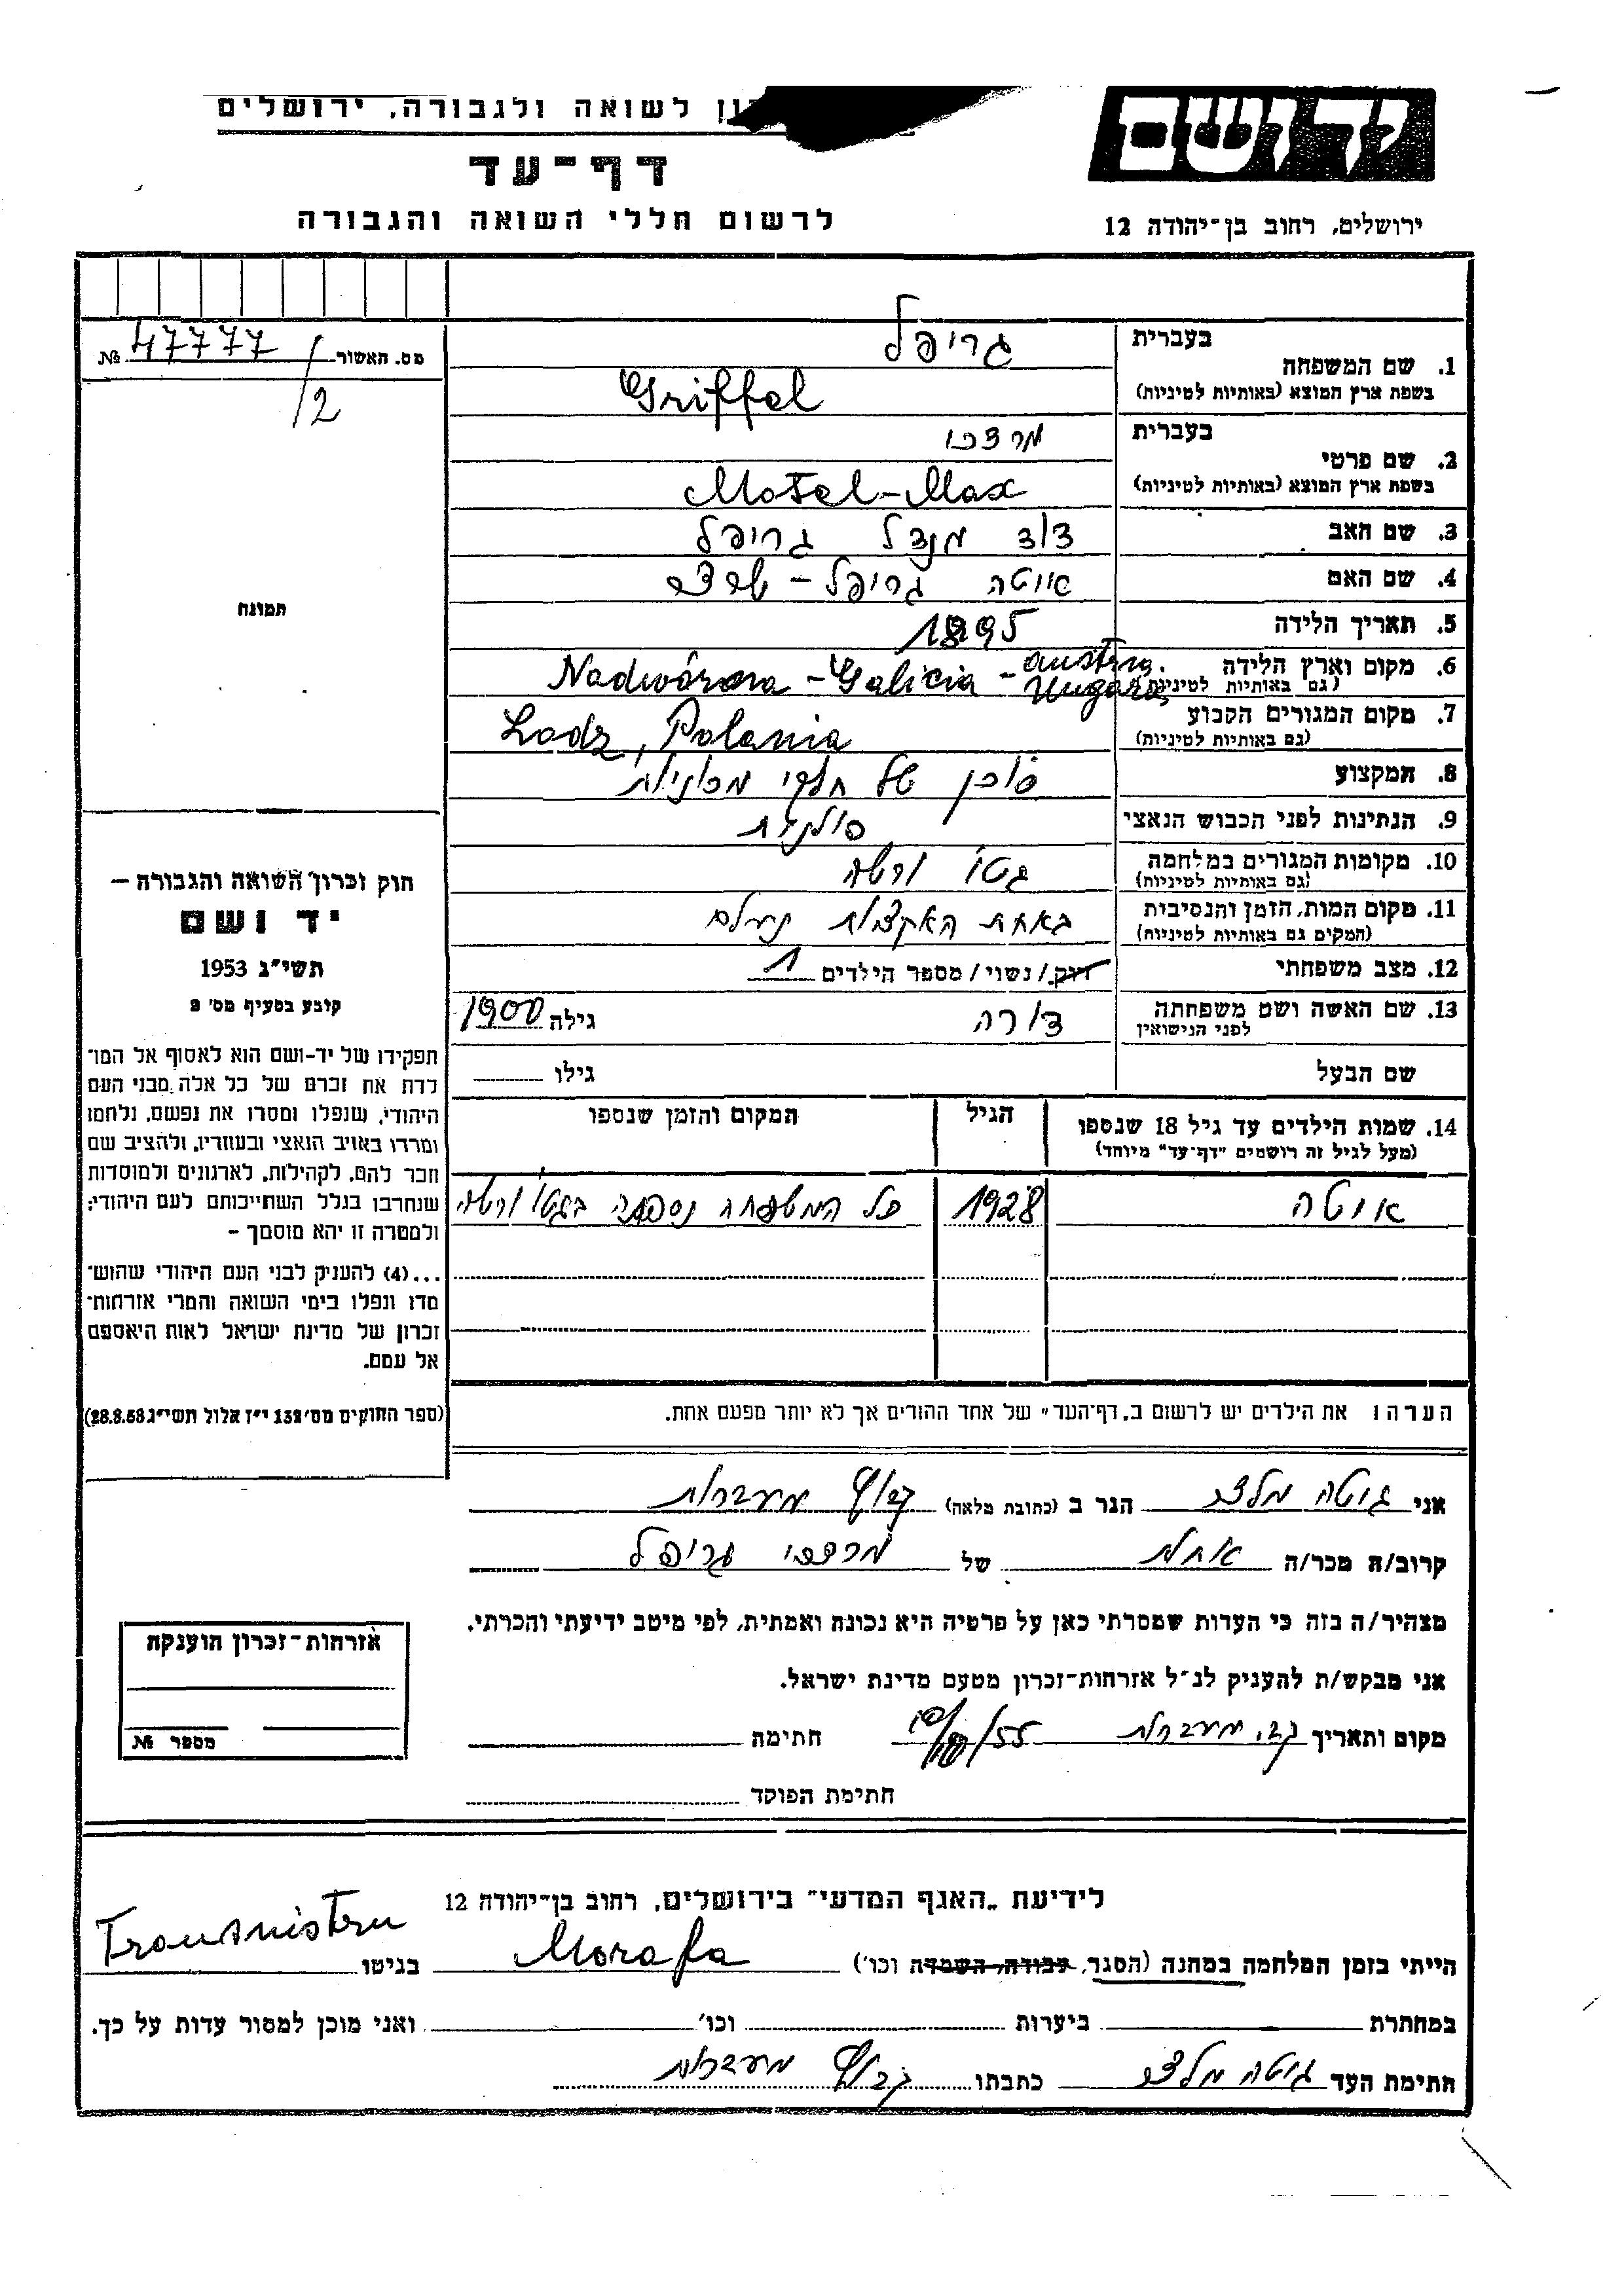 יד ושם
ון לשואה ולגבורה, ירושלים
דף-עד
לרשום חללי השואה והגבורה
ירושלים, רחוב בן-יהודה 12
מס. האשור № 47777/
/2
תמונה
בעברית גריפל
1. שם המשפחה
בשפת ארץ המוצא (באותיות לטיניות) Griffel
בעברית מרדכי
2. שם פרטי
בשפת ארץ המוצא (באותיות לטיניות) Motel-Max
3. שם האב דוד מנדל גריפל
4. שם האם איטה גריפל-
5. תאריך הלידה 1895
6. מקום וארץ הלידה Nadwórna - Galicia - austria.
(גם באותיות לטיניות) Ungara
7. מקום המגורים הקבוע Lodz, Polania
(גם באותיות לטיניות)
8. המקצוע סוכן של חלקי מכוניות
9. הנתינות לפני הכבוש הנאצי פולנית
10. מקומות המגורים במלחמה גטו ורשה
(גם באותיות לטיניות)
11. מקום המות, הזמן והנסיבות באחת האקציות נעלם
(המקום גם באותיות לטיניות)
12. מצב משפחתי רווק/נשוי/מספר הילדים 1
13. שם האשה ושם משפחתה דורה גילה 1900
לפני הנישואין
שם הבעל גילו
14. שמות הילדים עד גיל 18 שנספו הגיל המקום והזמן שנספו
(מעל לגיל זה רושמים "דף-עד" מיוחד)
איטה 1928 כל המשפחה נספתה בגטו ורשה
הערה: את הילדים יש לרשום ב„דף-העד" של אחד ההורים אך לא יותר מפעם אחת.
חוק זכרון השואה והגבורה –
יד ושם
תשי"ג 1953
קובע בסעיף מס' 2
תפקידו של יד-ושם הוא לאסוף אל המו־
לדת את זכרם של כל אלה מבני העם
היהודי, שנפלו ומסרו את נפשם, נלחמו
ומרדו באויב הנאצי ובעוזריו, ולהציב שם
וזכר להם, לקהילות, לארגונים ולמוסדות
שנחרבו בגלל השתייכותם לעם היהודי;
ולמטרה זו יהא מוסמך –
...(4) להעניק לבני העם היהודי שהוש־
מדו ונפלו בימי השואה והמרי אזרחות־
זכרון של מדינת ישראל לאות היאספם
אל עמם.
(ספר החוקים מס' 132 י"ז אלול תשי"ג 28.8.53)
אני גוטה מלצר הגר ב (כתובת מלאה) קבוץ מעברות
קרוב/ה מכר/ה אחות של מרדכי גריפל
מצהיר/ה בזה כי העדות שמסרתי כאן על פרטיה היא נכונה ואמתית, לפי מיטב ידיעתי והכרתי.
אני מבקש/ת להעניק לנ"ל אזרחות-זכרון מטעם מדינת ישראל.
מקום ותאריך קב. מעברות /55 חתימה
חתימת הפוקד
אזרחות-זכרון הוענקה
מספר №
לידיעת „האגף המדעי" בירושלים, רחוב בן-יהודה 12
הייתי בזמן המלחמה במחנה (הסגר, עבודה, השמדה וכו') Morafa בגיטו Transnistru
במחתרת ביערות וכו' ואני מוכן למסור עדות על כך.
חתימת העד גוטה מלצר כתבתו קבוץ מעברות